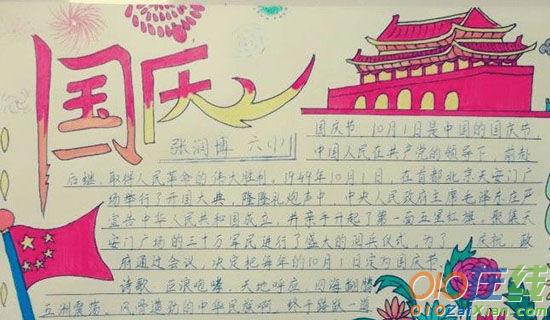 国庆
张润博 六(1)
国庆节 10月1日是中国的国庆节,
中国人民在共产党的领导下,前赴
后继,取得人民革命的伟大胜利,1949年10月1日,在首都北京天安门广
场举行了开国大典,隆隆礼炮声中,中央人民政府主席毛泽东庄严
宣告中华人民共和国成立,并亲手升起了第一面五星红旗,聚集天
安门广场的三十万军民进行了盛大的阅兵仪式,为了 庆祝,政
府通过会议,决定把每年的10月1日定为国庆节。
诗歌:巨浪咆哮,天地呼应,四海翻腾
五洲震荡,风雷激励的中华民族啊 终于
在线
ZaiXian.com